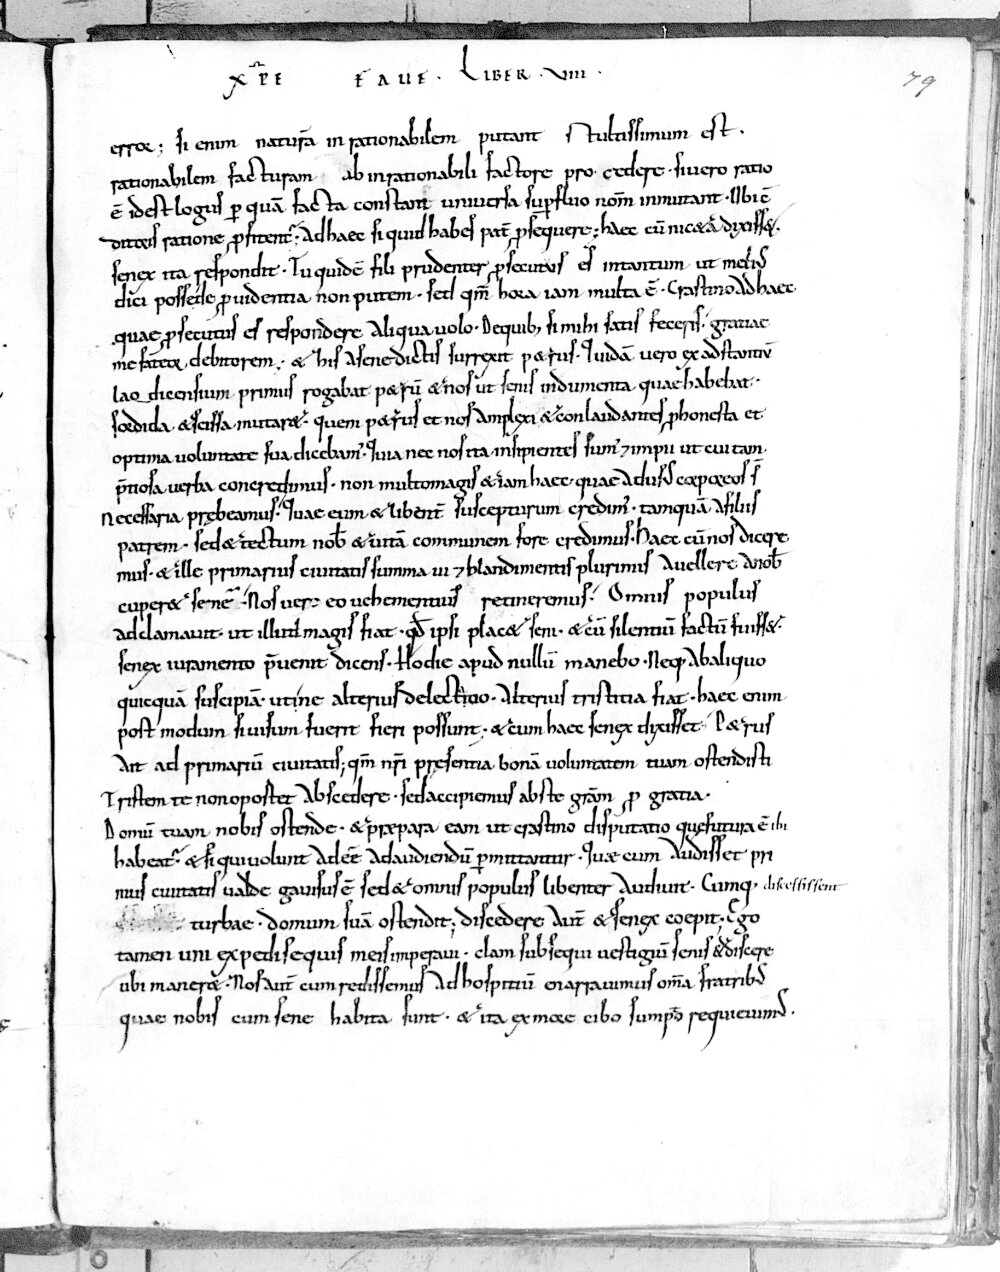 XPE FAUE. LIBER. VIII.
79
error; si enim naturā inrationabilem putant stultissimum est.
rationabilem facturam ab inrationabili factore procedere. si vero ratio
ē id est logus p quā facta constant universa supfluo nom̄ inmutant. Ubi ē
ratione pfitent᷑. Ad haec si quid habes pat̄ psequere; haec cū niceta dixisset.
senex ita respondit. Tu quidē fili prudenter psecutus es intantum ut
dici posse de puidentia non putem. sed qm̄ hora iam multa ē. Crastino ad haec
quae psecutus es respondere aliqua volo. De quib; si mihi satis feceris. gratiae
me debitorem; & his a sene dictis surrexit petrus. Quidā vero ex adstantiū
laodicensium primus rogabat petrū & nos ut senis indumenta quae habebat.
sordida & scissa mutaret. quem petrus et nos amplexi & conlaudantes p honesta et
optima voluntate sua dicebam᷑. Quia nec nos ita insipientes sum᷑ ⁊ impii ut cui tam
p̄tiosa verba concredimus. non multo magis & iam haec. quae ad usū corporeos s̄
Necessaria prębeamus. Quae eum & libent̄ suscepturum credim᷑. tamquā a filiis
patrem. sed & tectum nob̄ & vitā communem fore credimus. Haec cū nos dicere
mus. & ille primarius civitatis summa vi ⁊ blandimentis plurimis avellere a nob̄
cuperet senē. Nos vero eo vehementius retineremus. Omnis populus
adclamavit. ut illud magis fiat. qd ipsi placet seni. & cū silentiū factū fuisset
senex iuramento p̄venit dicens. Hodie apud nullū manebo. Neq; ab aliquo
quicquā suscipiā. uti ne alterius delectatio. Alterius tristitia fiat. haec enim
postmodum si visum fuerit fieri possunt. & cum haec senex dixisset. Petrus
Ait ad primariū civitatis; qm̄ nr̄i presentia bonā voluntatem tuam ostendisti
Tristem te non oportet abscedere. sed accipiemus abs te grām p gratia.
Domū tuam nobis ostende. & praepara eam ut crastino disputatio que futura ē ibi
habeat᷑. & si qui volunt adee̅ ad audiendū pmittantur. Quae cum audisset pri
mus civitatis valde gavisus ē sed & omnis populus libenter audivit. Cumq; discessissent
turbae. domum suā ostendit; discedere aut̄ & senex coepit; Ego
tamen uni ex pedisequis meis imperavi. clam subsequi vestigiū senis & discere
ubi maneret. Nos aut̄ cum redissemus ad hospitiū enarravimus om̄a fratrib;
quae nobis cum sene habita sunt. & ita ex more cibo sumpto requievim᷑.